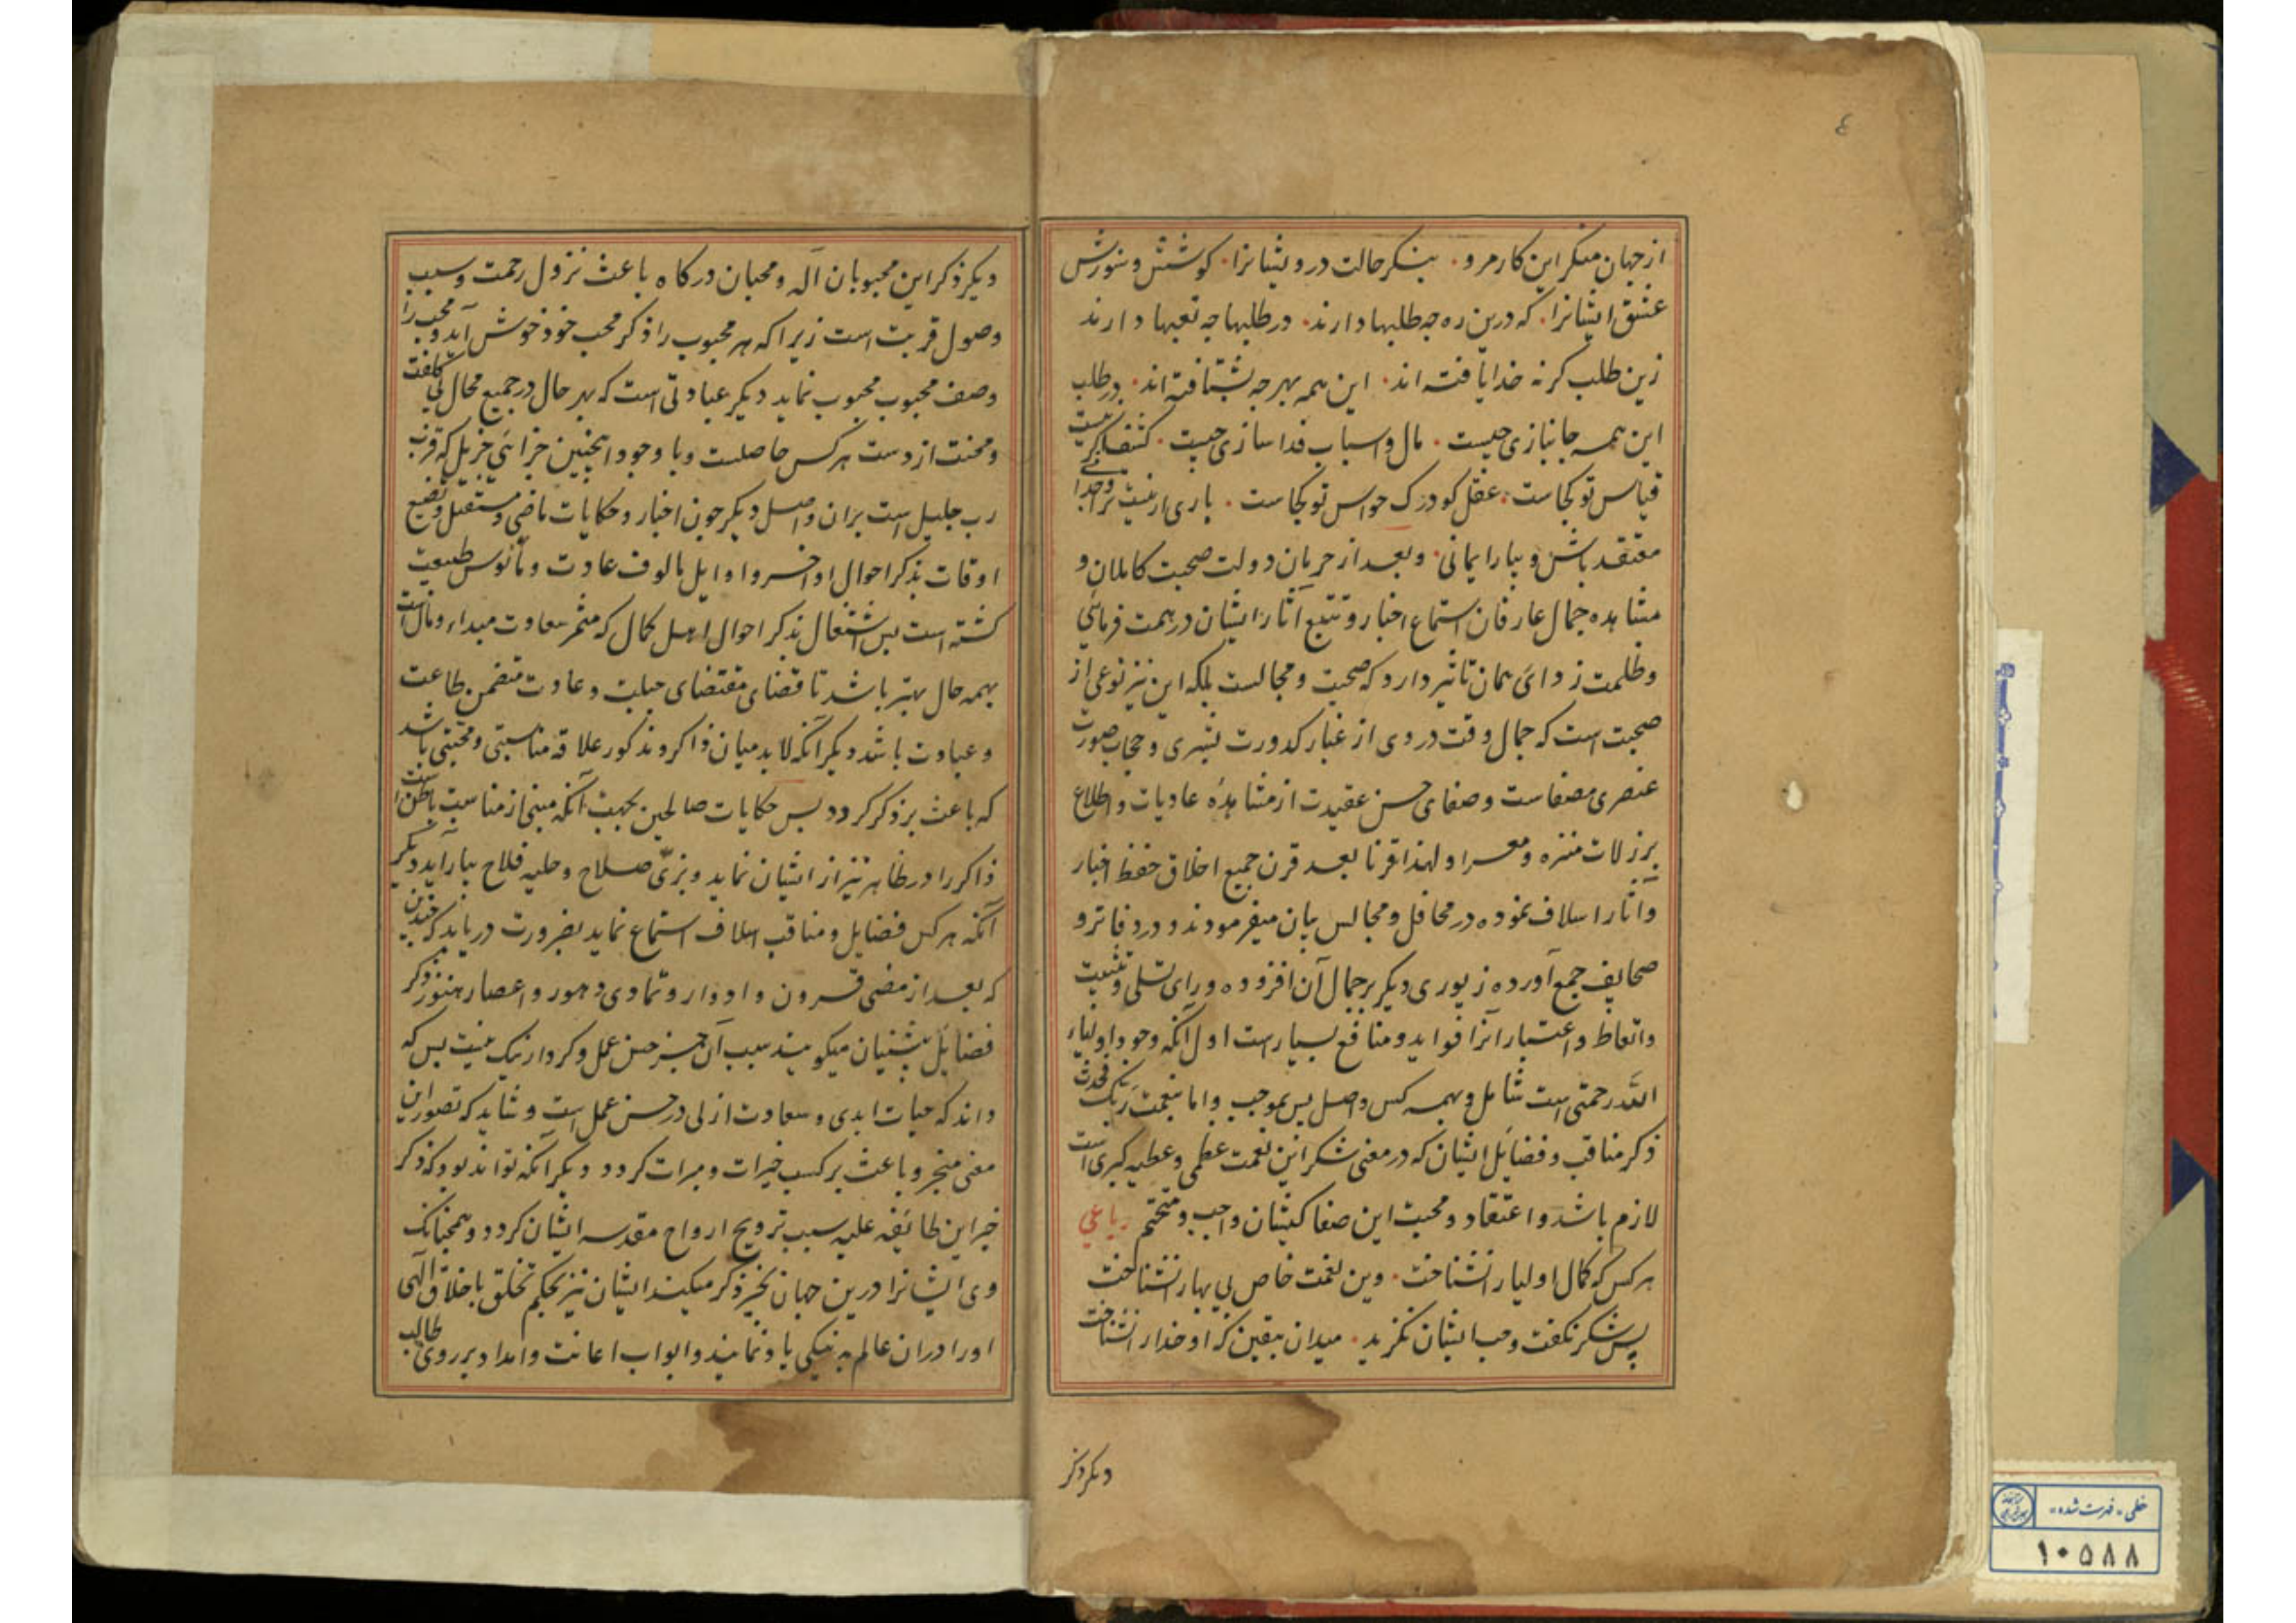 ٤
از جهان منکر این کار مرو۰ بنکر حالت درویشانرا۰ کوشش و شورش
عشق ایشانرا۰ که درین ره چه طلبها دارند۰ در طلبها چه تعبها دارند
زین طلب کر نه خدا یافته اند۰ این همه بهر چه بشتافته اند۰ در طلب
این همه جانبازی چیست۰ مال و اسباب فدا سازی چیست۰ کشف اکر نیست
قیاس تو کجاست۰ عقل کو درک حواس تو کجاست۰ باری ار نیست ترا وجدانی
معتقد باش و بیار ایمانی۰ و بعد از حرمان دولت صحبت کاملان و
مشاهده جمال عارفان استماع اخبار و تتبع آثار ایشان در همت فرمائی
و ظلمت زدائی همان تاثیر دارد که صحبت و مجالست بلکه این نیز نوعی از
صحبت است که جمال وقت در وی از غبار کدورت بشری و حجاب صورت
عنصری مصفاست و صفای حسن عقیدت از مشاهدهٔ عادیات و اطلاع
بر زلات منزه و معرا و لهذا قرنا بعد قرن جمیع اخلاق حفظ اخبار
و آثار اسلاف نموده در محافل و مجالس بیان میفرمودند و در دفاتر و
صحایف جمع آورده زیوری دیکر بر جمال آن افزوده و رای تسلی و تثبیت
و اتعاظ و اعتبار آنرا فواید و منافع بسیار است اول آنکه وجود اولیاء
الله رحمتی است شامل و بهمه کس واصل پس بموجب واما بنعمت ربک فحدث
ذکر مناقب و فضایل ایشان که در معنی شکر این نعمت عظمی و عطیه کبری است
لازم باشد و اعتقاد و محبت این صفا کیشان واجب و متحتم رباعی
هر کس که کمال اولیا را نشناخت۰ وین نعمت خاص بی بها را نشناخت
پس شکر نکفت و حب ایشان نکزید۰ میدان بیقین که او خدا را نشناخت
دیکر ذکر
دیکر ذکر این محبوبان آله و محبان درکاه باعث نزول رحمت و سبب
وصول قربت است زیرا که هر محبوب را ذکر محب خود خوش آید و محب را
وصف محبوب محبوب نماید دیکر عبادتی است که بهر حال در جمیع محال بی کلفت
و محنت از دست هر کس حاصلست و با وجود اینچنین جزائی جزیل که قرب
رب جلیل است بران واصل دیکر چون اخبار و حکایات ماضی و مستقبل و تضییع
اوقات بذکر احوال اواخر و اوایل مالوف عادت و مأنوس طبیعت
کشته است پس اشتغال بذکر احوال اهل کمال که مثمر سعادت مبداء و مآل است
بهمه حال بهتر باشد تا قضای مقتضای جبلت و عادت متضمن طاعت
و عبادت باشد دیکر آنکه لابد میان ذاکر و مذکور علاقه مناسبتی و محبتی باشد
که باعث بر ذکر کردد پس حکایات صالحین بجهت آنکه مبنی از مناسبت باطن است
ذاکر را در ظاهر نیز از ایشان نماید و بزیّ صلاح و حلیه فلاح بیاراید دیکر
آنکه هر کس فضایل و مناقب اسلاف استماع نماید بضرورت دریابد که چندین
که بعد از مضی قرون و ادوار و تمادی دهور و اعصار هنوز ذکر
فضایل پیشنیان میکویند سبب آن جز حسن عمل و کردار نیک نیست پس که
داند که حیات ابدی و سعادت ازلی در حسن عمل است و شاید که تصور این
معنی منجر و باعث بر کسب خیرات و مبرات کردد دیکر آنکه تواند بود که ذکر
خیر این طایفه علیه سبب ترویح ارواح مقدسه ایشان کردد و همچنانک
وی ایشانرا درین جهان بخیر ذکر میکند ایشان نیز بحکم تخلق باخلاق الهی
او را دران عالم به نیکی یاد نمایند و ابواب اعانت و امداد بر روی طالب
خطی - فهرست شده -
۱۰۵۸۸